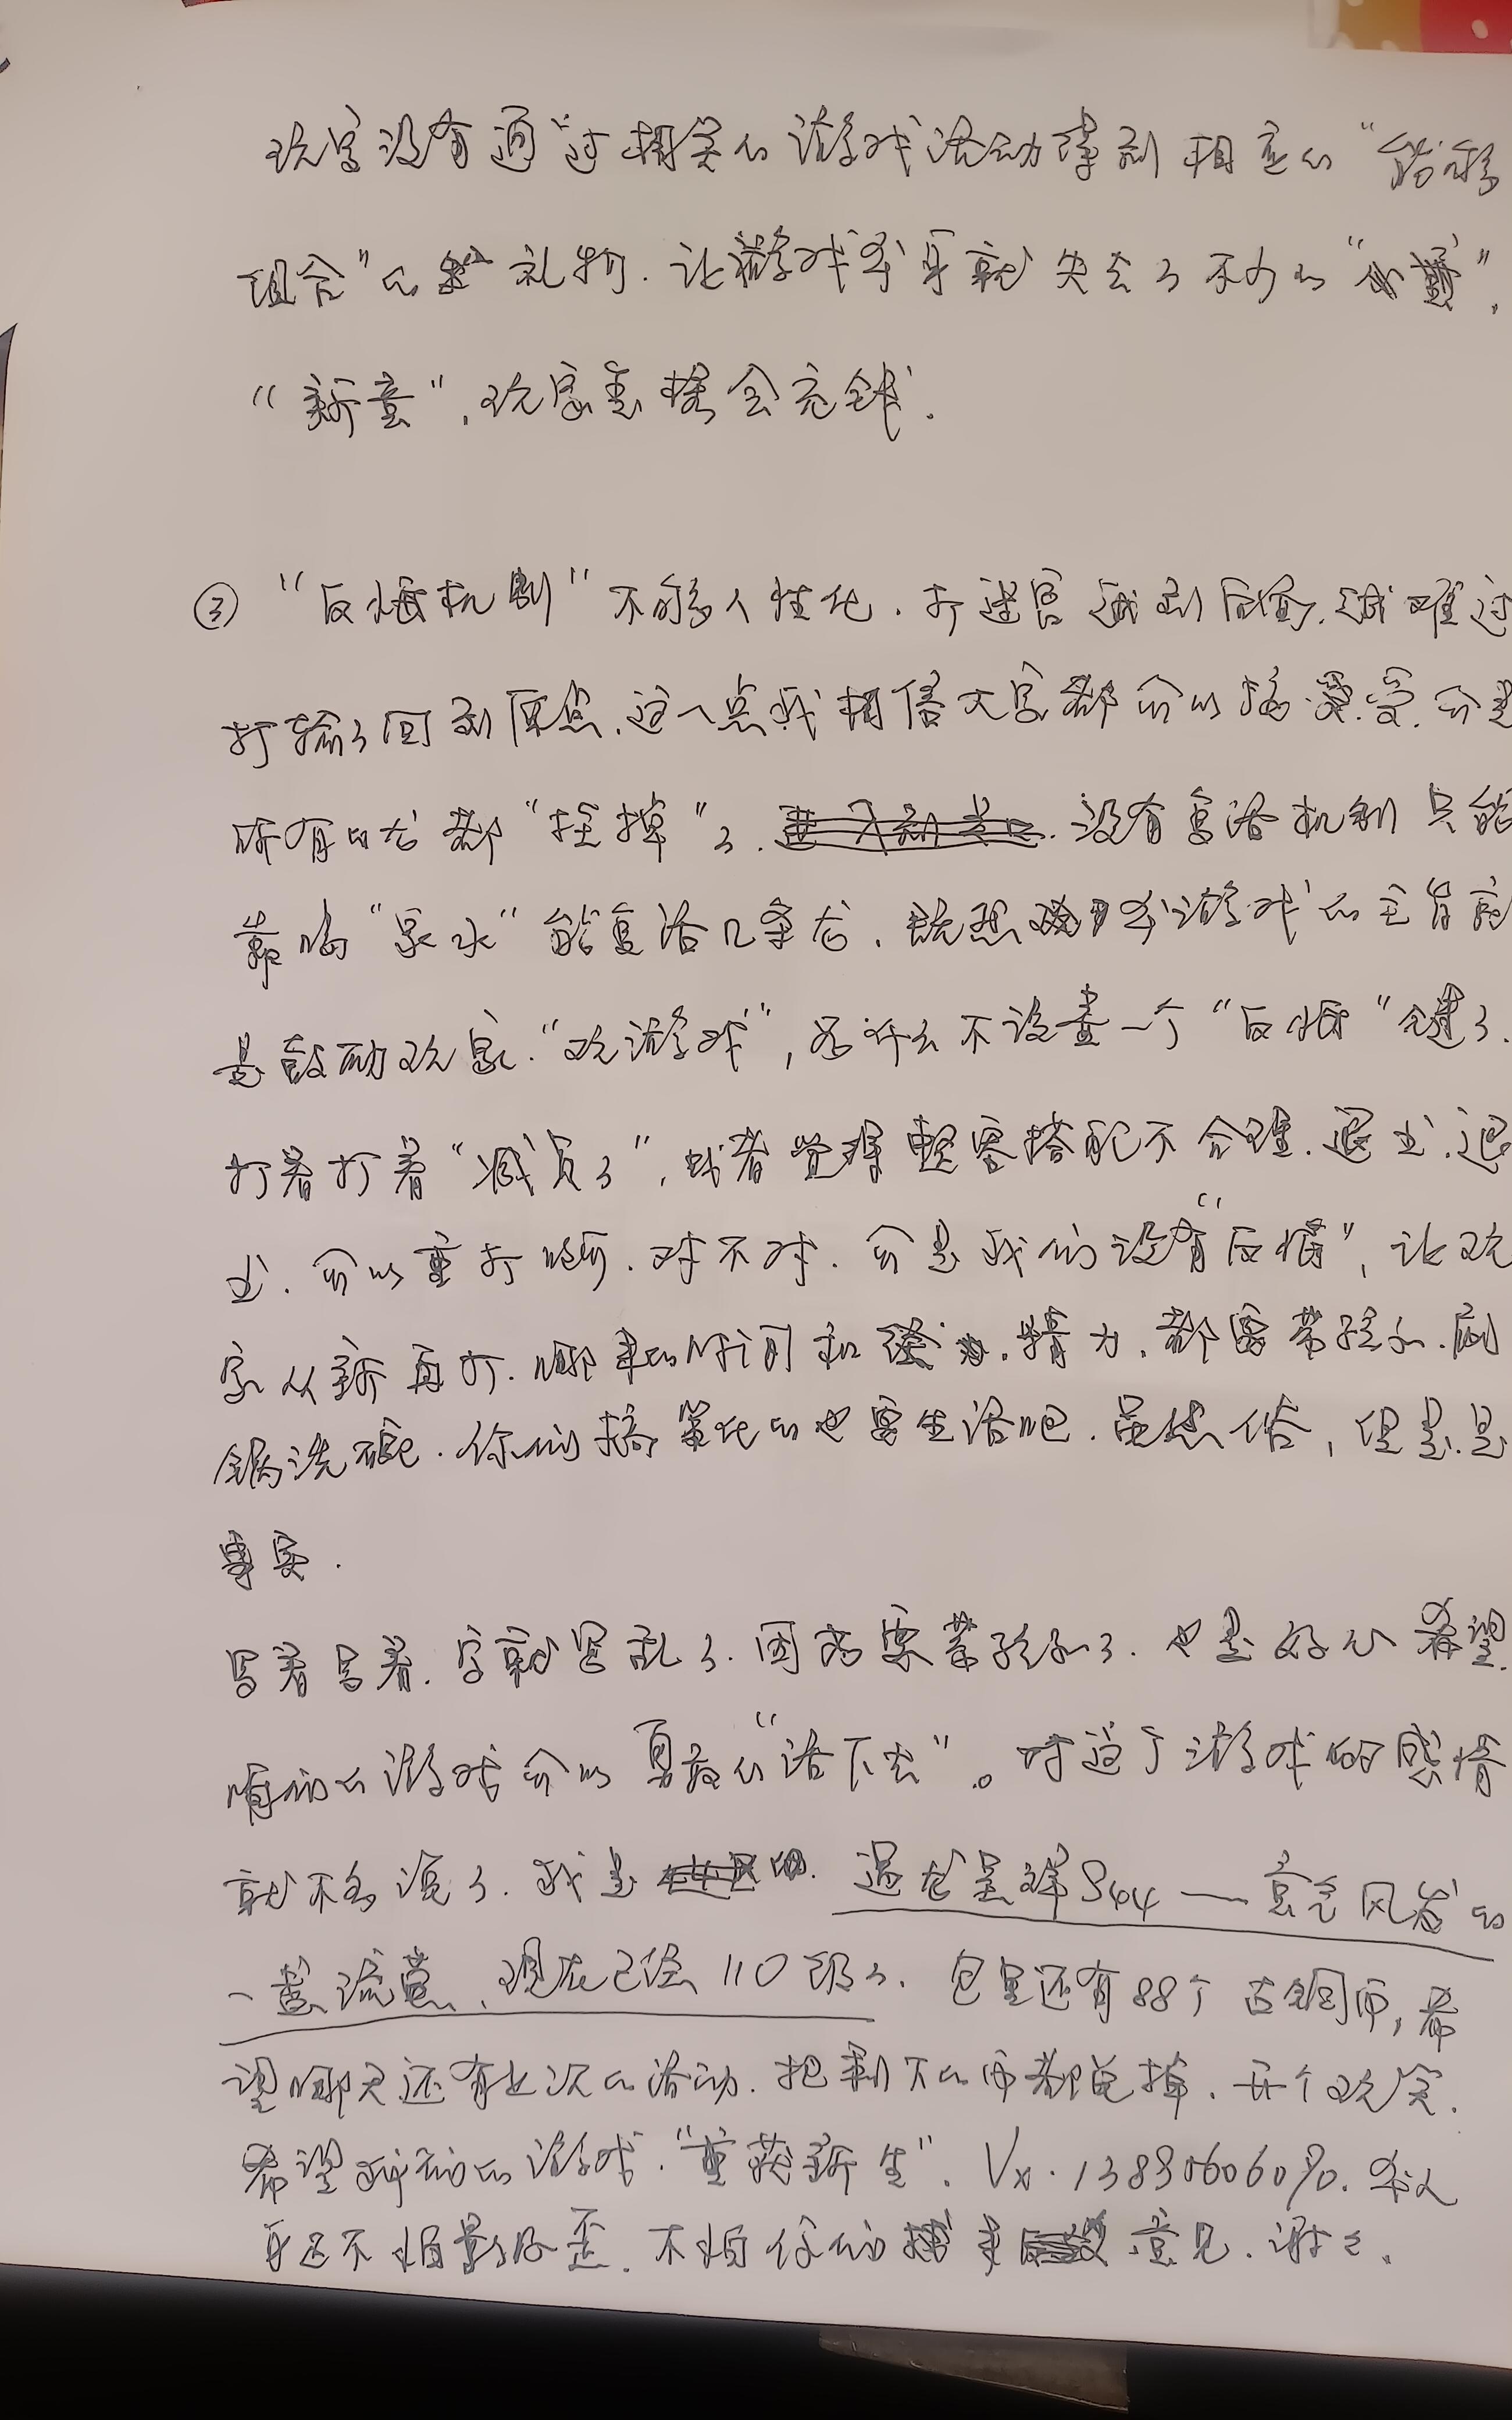 玩家没有通过相关的游戏活动拿到相应的"
组合"的礼物.让游戏本身就失去了不少的"
"新意",玩家怎样会充钱.
③ "反悔机制"不够多人性化.打迷宫越到后面.越难过
打输了回到原点.这一点我相信大家都可以接受.可是
所有的龙都"挂掉"了.没有复活机制只能
靠喝"泉水"能复活几条龙.既然本游戏的主旨就
是鼓励玩家."玩游戏",为什么不设置一个"反悔"键了.
打着打着"减员了",或者觉得整容搭配不合理.退出.退
出.可以重打嘛.对不对.可是我们没有"反悔",让玩
家从新再打.哪来的时间和精力.都要带孩子.刷
锅洗碗.你们搞策化的也要生活吧.虽然俗,但是.是
事实.
写着写着.字就写乱了.因为要带孩子了.也是好心希望
咱们的游戏可以更好的"活下去"。对这个游戏的感情
就不多说了.我是 遇龙呈祥S44——意气风发的
一盏流萤.现在已经110级了.包里还有88个古铜币,希
望哪天还有上次的活动.把剩下的币都兑掉.开个玩笑.
希望我们的游戏."重获新生".Vx.
身正不怕影子歪.不怕你们 来 意见.谢谢.